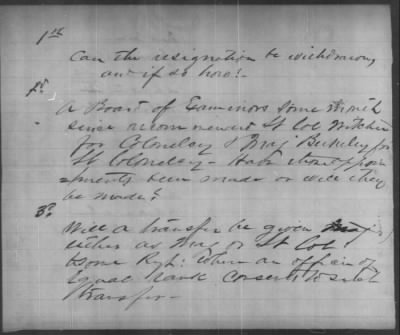 1st
Can the resignation be withdrawn,
and if so how?
2d
A Board of Examiners some month
since recommended Lt Col Witcher
for Colonelcy & Maj Berkeley for
Lt Colonelcy - Have those appoin
=tments been made or will they
be made?
3d
Will a transfer be given
either as Maj or Lt Col
to some Regt: when an officer of
Equal Rank Consents to such
transfer -